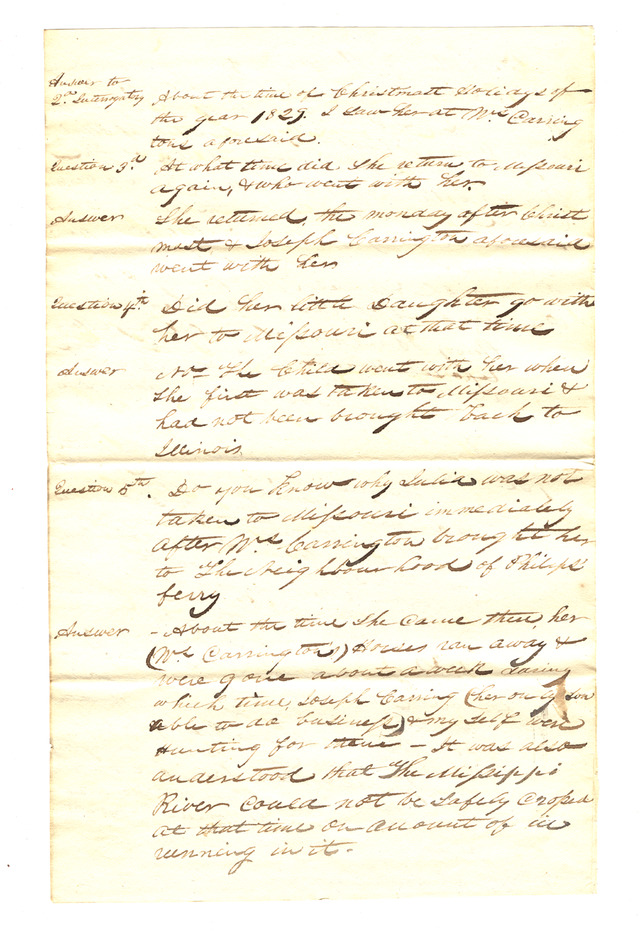 Answer to
2nd Interrogatory About the time of Christmast Holidays of
the year 1829. I saw her at Mrs Carring
tons aforesaid.
Question 3d At what time did She return to Missouri
again, & who went with her.
Answer She returned the monday after Christ
mast & Joseph Carrington aforesaid
went with her
Question 4th Did her little Daughter go with
her to Missouri at that time
Answer No- The Child went with her when
She first was taken to Missouri &
had not been brought back to
Illinois
Question 5th. Do you know why Julia was not
taken to Missouri immediately
after Mrs Carrington brought her
to The Neighbourhood of Philips
ferry
Answer - About the time She came then, her
(Mrs Carrington's) Horses ran away &
were gone about a week during
which time, Joseph Carring (her only son
able to do business) & my self were
Hunting for them - It was also
understood that The Missippi
River could not be Safely Crossed
at that time on account of ice
running in it.-